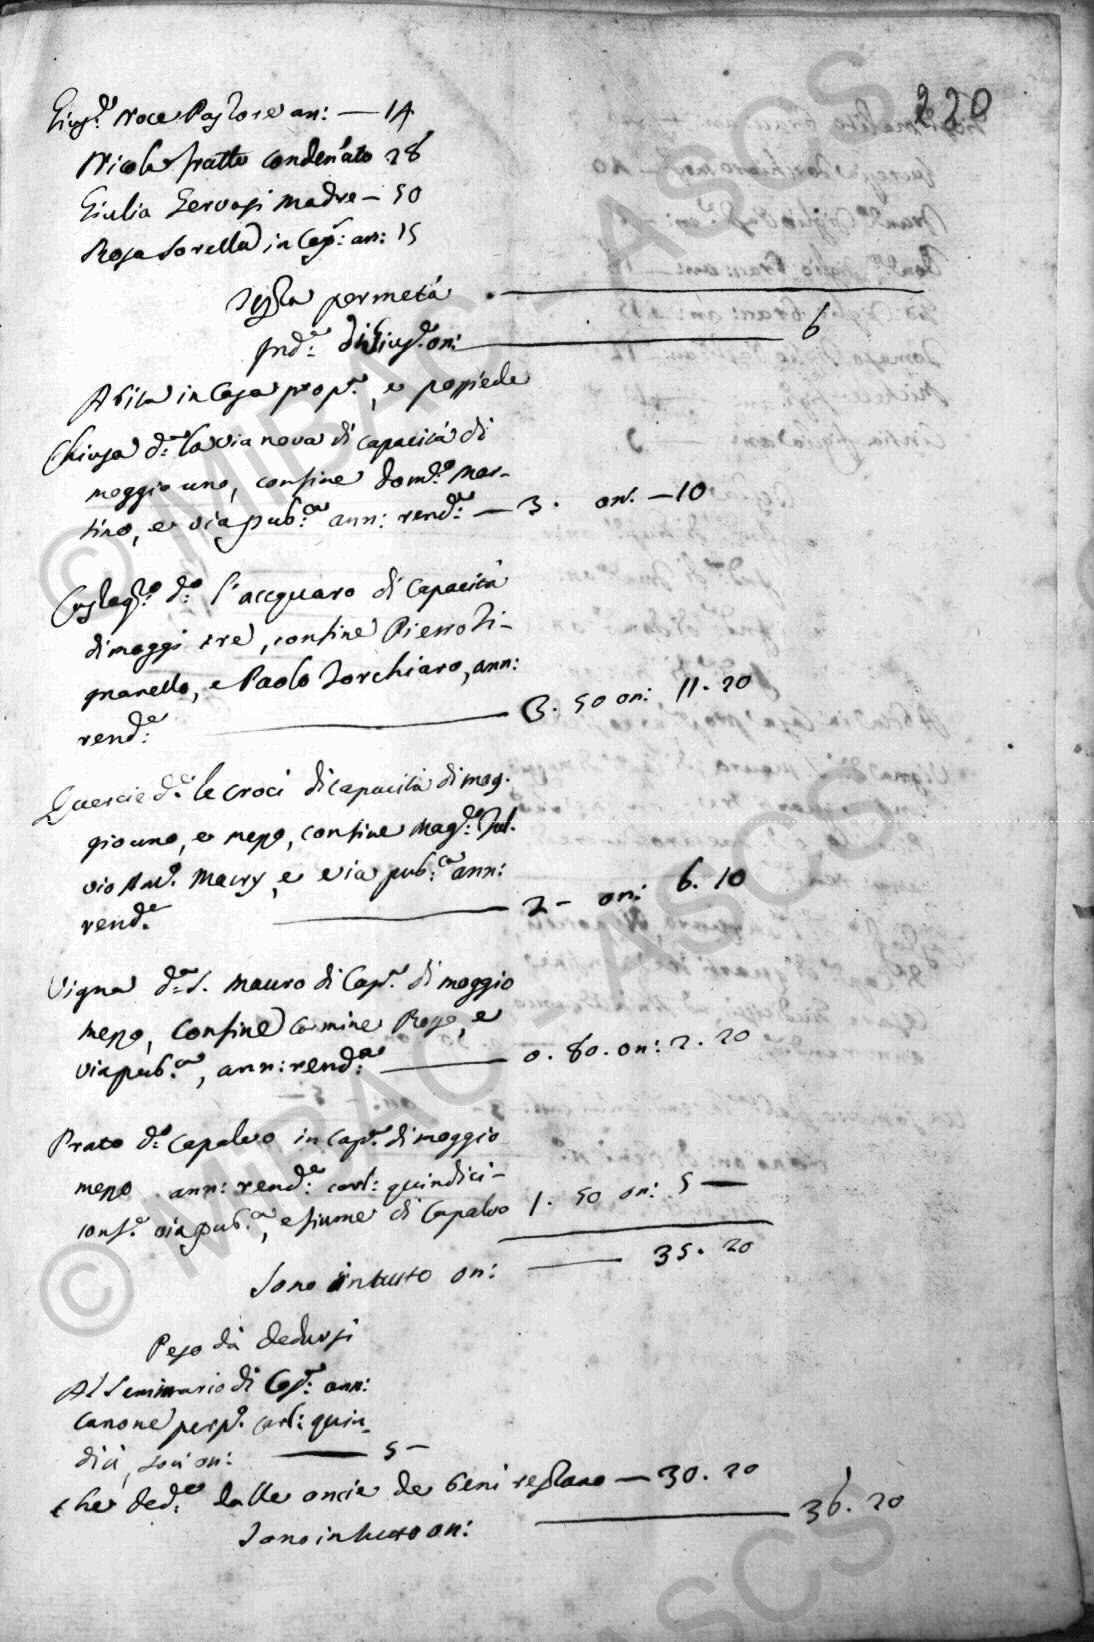 220
Gius.e Noce Pastore an: — 14
Nicola fratto condenato 28
Giulia Gervasi madre — 50
Rosa Sorella in Cap.: an: 15
Testa per metà
Ind.a di Gius.e on: — 6
Abita in Casa prop.a, e possiede
Chiusa d.a la via nova di capacità di
moggio uno, confine Dom.o Mar-
tino, e via pub.ca ann: rend.a — 3. on. — 10
Castag.o d.o l'accquaro di capacità
di moggi tre, confine Pierro Ti-
gnanello, e Paolo Torchiaro, ann:
rend.a — 3. 50 on: 11. 20
Quercie d.e le croci di capacità di mog-
gio uno, e mezo, confine Mag.o Ful-
vio Ant.o Maury, e via pub.ca ann:
rend.a — 2 — on: 6. 10
Vigna d.a S. Mauro di Cap.a di moggio
mezo, Confine Carmine Rose, e
via pub.ca, ann: rend.a — 0. 80. on: 2. 20
Prato d.o Capalvo in cap.a di moggio
mezo ann: rend.a carl: quindici —
conf.e via pub.ca, e fiume di Capalvo 1. 50 on: 5 —
Sono in tutto on: — 35. 20
Peso da dedursi
Al Seminario di Cos.: ann:
canone perp.o carl: quin-
dici, sono on: — 5 —
che ded.e dalle oncie de beni restano — 30. 20
Sono in tutto on: — 36. 20
© MIBAC - ASCS
© MIBAC - ASCS